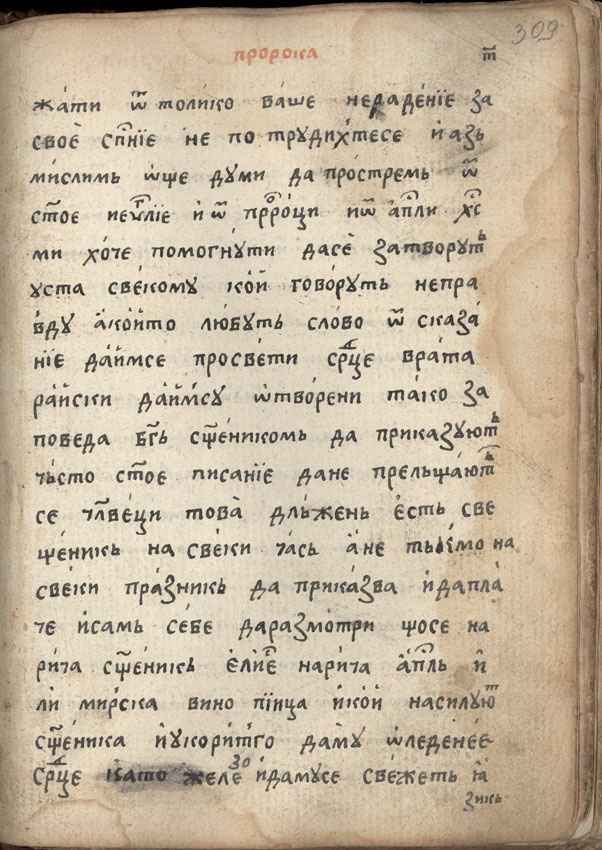 309
пророка т҃
жа́ти ѿ толи́ко ва́ше нераде́нїе за
своѐ сп҃нїе не потрудихте́се и҆ азь
ми́слимь ѡ҆ще думи да простремь ѿ
ст҃ое иеѵⷢ҇лїе и҆ ѿ прⷪ҇ро́ци и҆ѿ а҆пⷭ҇ли хⷭ҇с
ми хо́че помогну́ти дасѐ затвору́тъ
уста све́кому ко́й гово́руть непра
вду а҆ко́йто лю́буть сло́во ѿ сказа́
нїе да́ймсе просве́ти срⷣце врата
ра́йски да́ймсу ѡ҆тво́рени та́ко за
поведа бг҃ь сщ҃е́никомь да приказу́ютъ
чьсто ст҃ое писанїе дане прельща́ютъ
се чл҃ве́ци това̀ дль́жень є҆сть све
ще́никь на све́ки ча́сь а҆не тькмо на
све́ки пра́зникь да прика́зва и҆дапла
че и҆самь се́бе даразмо́три що́се на
ри́ча сщ҃е́никь є҆лиⷭ҇е нари́ча а҆пⷭ҇ль и҆
ли ми́рска вино пїи́ца и҆ко́й насилуюⷮ
сщ҃е́ника и҆укори́тго да́му ѡ҆леде́не́е
срⷣце като желе́зо и҆даму́се све́жеть ꙗ҆
зикь